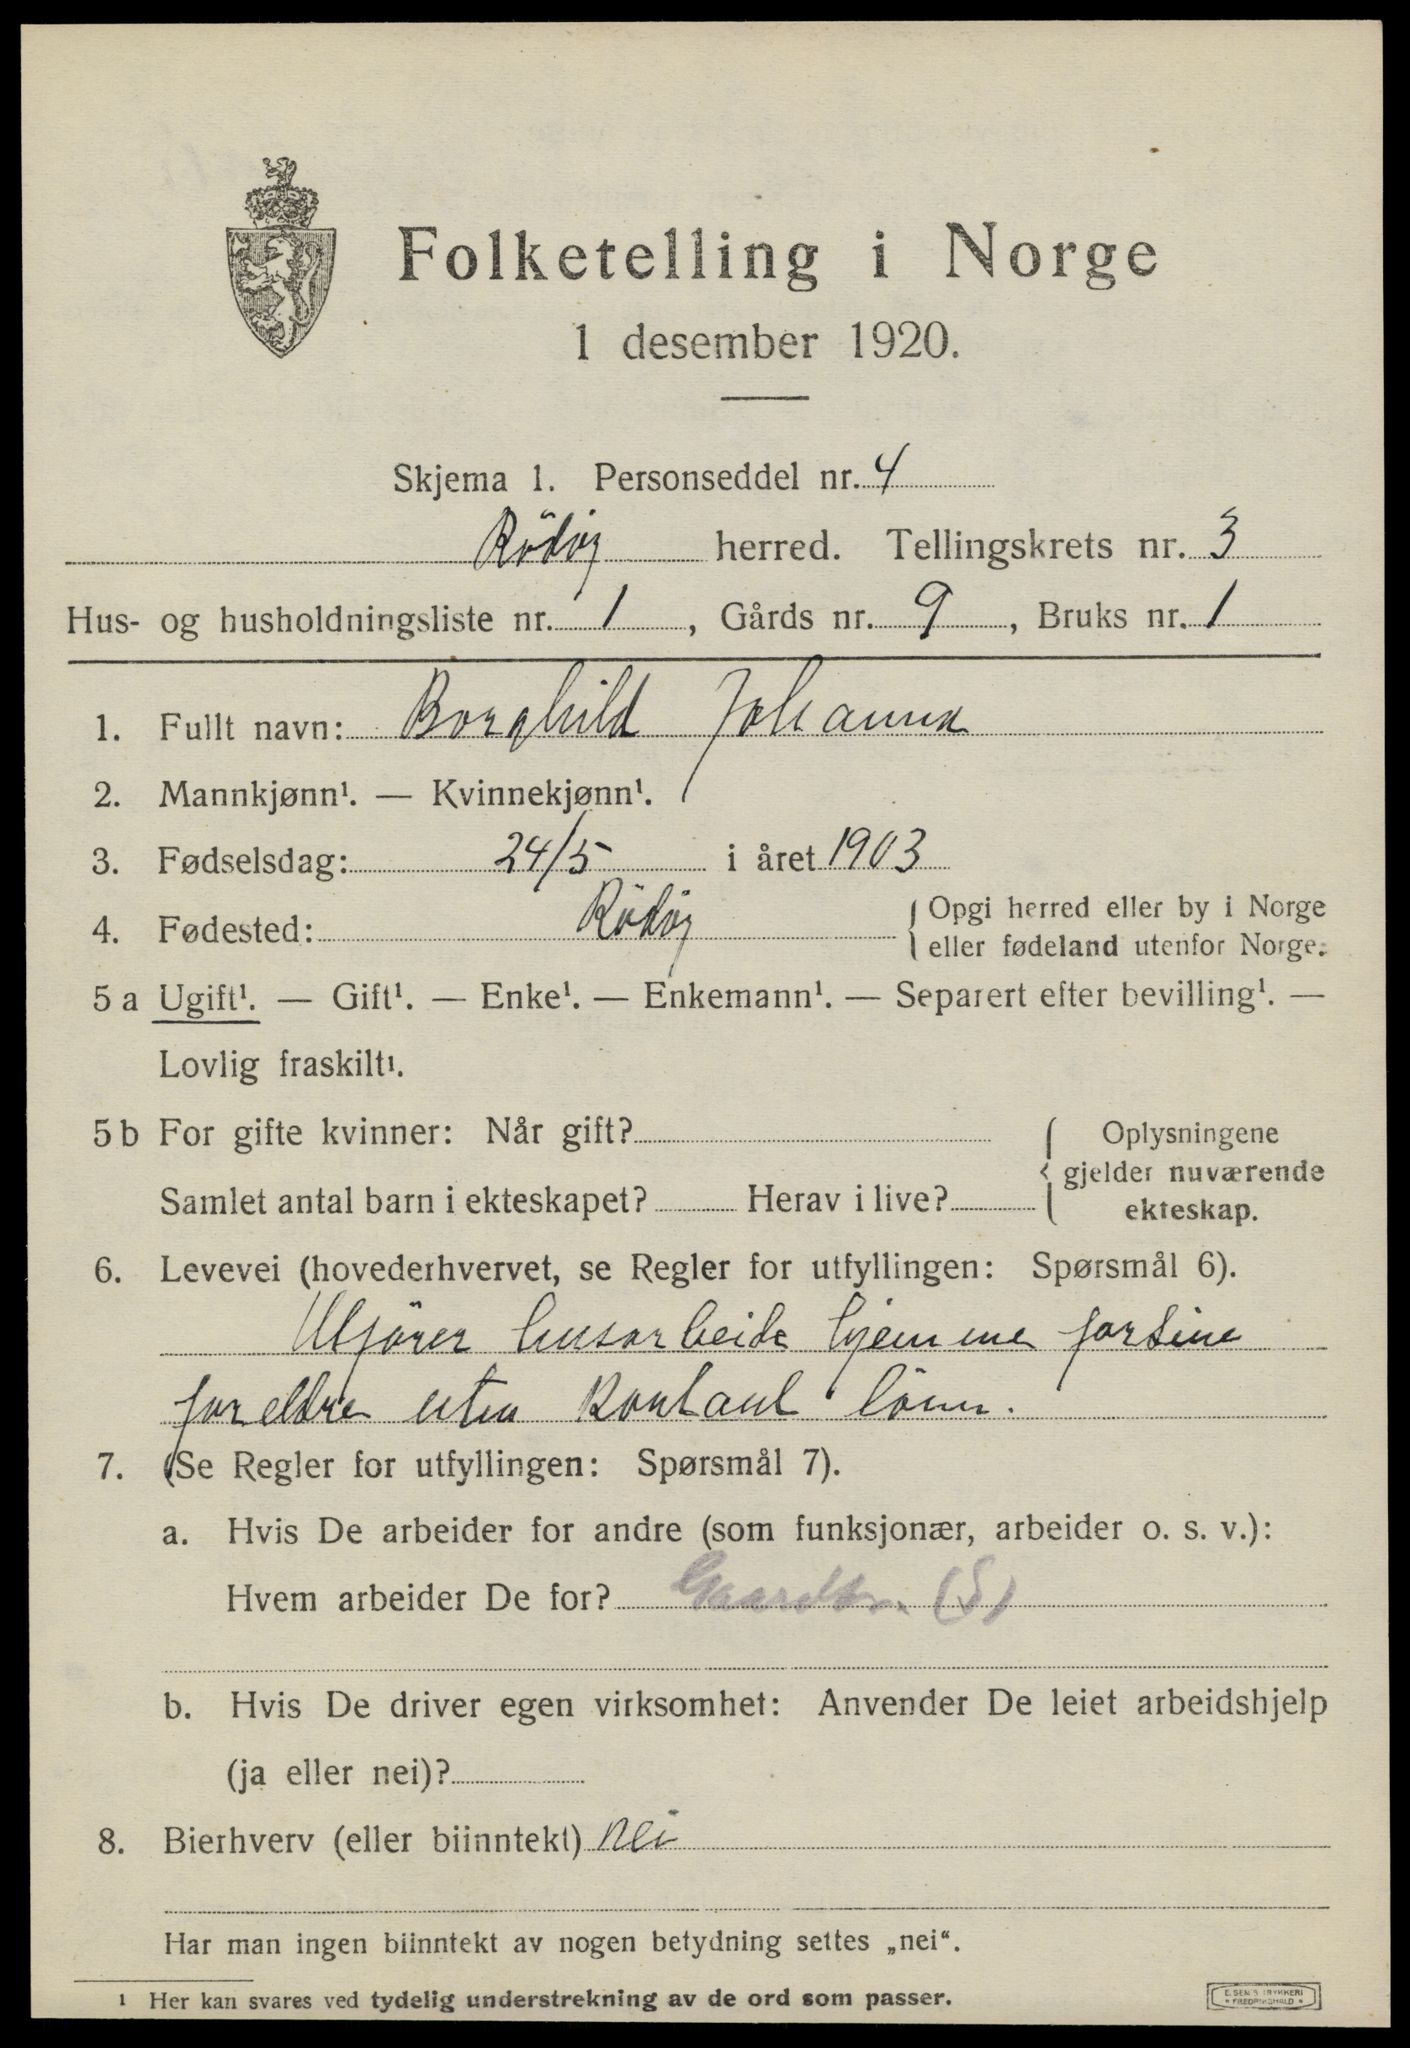 Folketelling i Norge
1 desember 1920.
Skjema 1. Personseddel nr. 4
Rödöy herred. Tellingskrets nr. 3
Hus- og husholdningsliste nr. 1, Gårds nr. 9, Bruks nr. 1
1. Fullt navn: Borghild Johanna
2. Mannkjønn¹. — Kvinnekjønn¹.
3. Fødselsdag: 24/5 i året 1903
4. Fødested: Rödöy { Opgi herred eller by i Norge
eller fødeland utenfor Norge.
5 a Ugift¹. — Gift¹. — Enke¹. — Enkemann¹. — Separert efter bevilling¹. —
Lovlig fraskilt¹.
5 b For gifte kvinner: Når gift?
Samlet antal barn i ekteskapet? Herav i live?
{ Oplysningene
gjelder nuværende
ekteskap.
6. Levevei (hovederhvervet, se Regler for utfyllingen: Spørsmål 6).
Utförer husarbeide hjemme for sine
foreldre uten kontant lönn.
7. (Se Regler for utfyllingen: Spørsmål 7).
a. Hvis De arbeider for andre (som funksjonær, arbeider o. s. v.):
Hvem arbeider De for? Gaardbr. (S)
b. Hvis De driver egen virksomhet: Anvender De leiet arbeidshjelp
(ja eller nei)?
8. Bierhverv (eller biinntekt) nei
Har man ingen biinntekt av nogen betydning settes „nei“.
1 Her kan svares ved tydelig understrekning av de ord som passer.
E. SEM'S TRYKKERI
* FREDRIKSHALD *